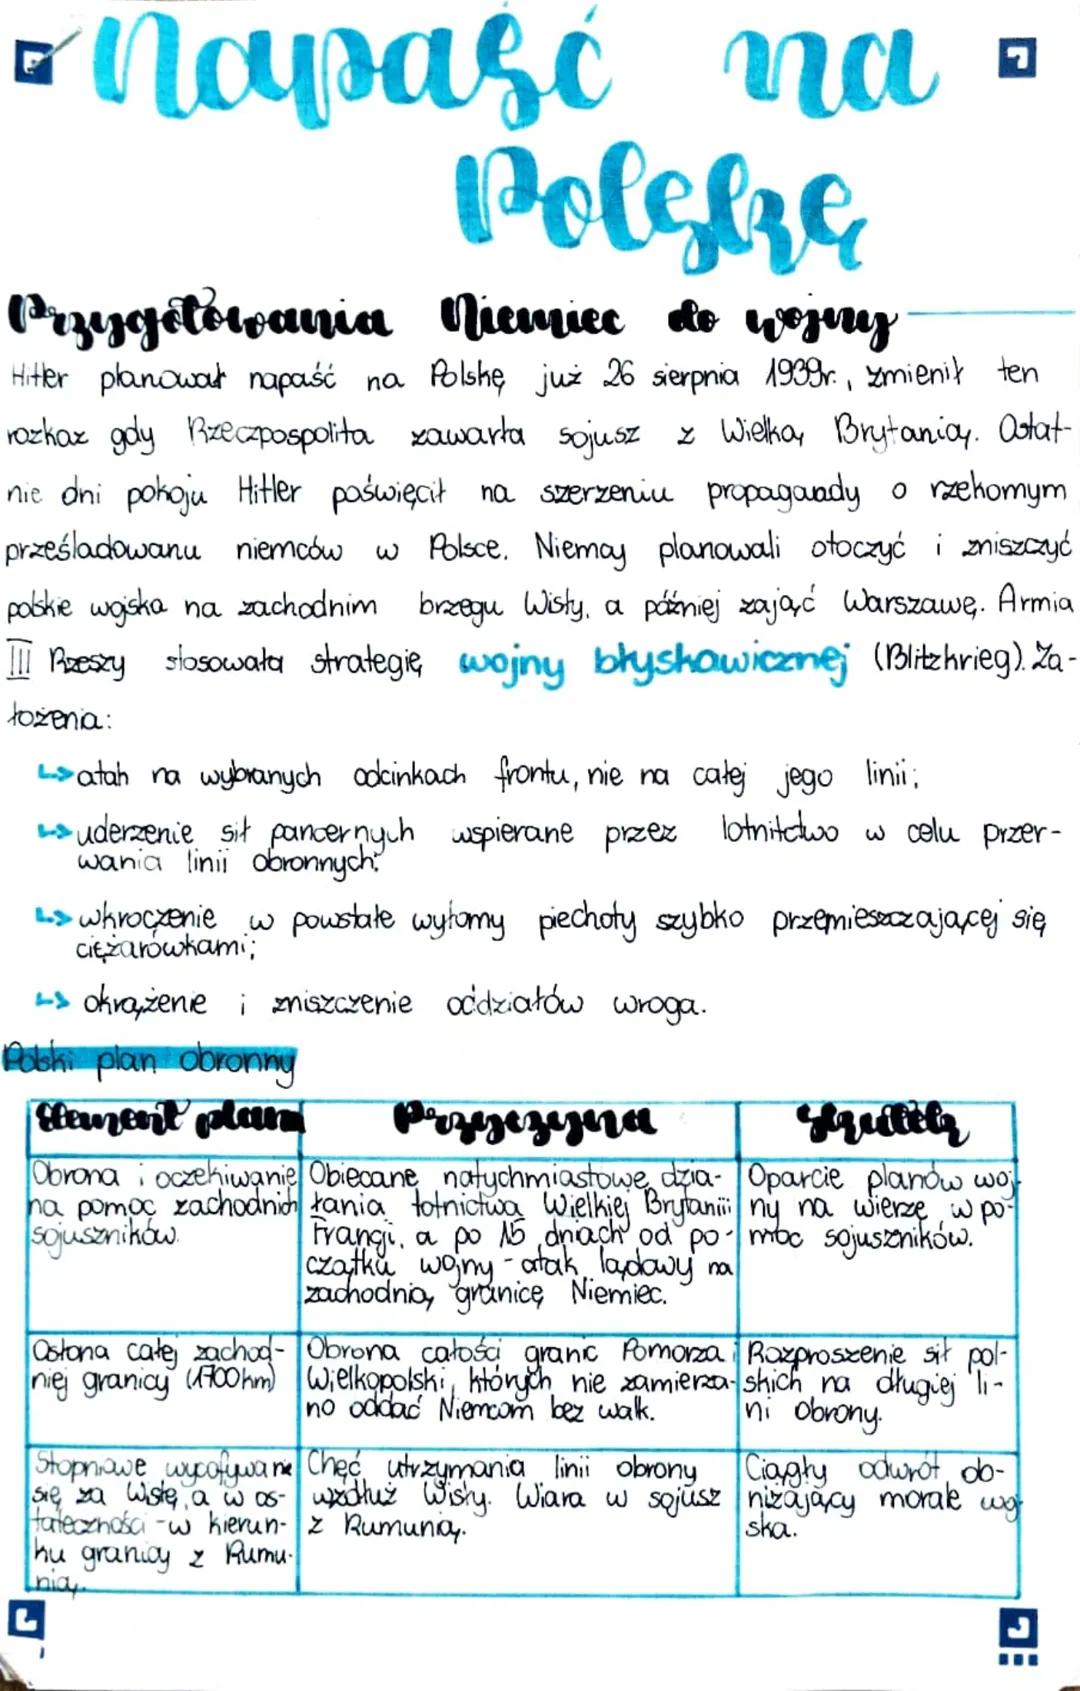 Napaść na
Polskę
Przygotowania Niemiec do wojny
Hitler planował napaść na Polskę już 26 sierpnia 1939r., zmienił ten
rozkaz gdy Rzeczpospolita zawarła sojusz z Wielką Brytanią. Ostat-
nie dni pokoju Hitler poświęcił na szerzeniu propagandy o rzekomym
prześladowanu niemców w Polsce. Niemcy planowali otoczyć i zniszczyć
polskie wojska na zachodnim brzegu Wisły, a później zająć Warszawę. Armia
III Rzeszy stosowała strategię wojny błyskawicznej (Blitzkrieg). Za-
łożenia:
↳ atak na wybranych odcinkach frontu, nie na całej jego linii;
↳ uderzenie sił pancernych wspierane przez lotnitctwo w celu przer-
wania linii obronnych;
↳ wkroczenie w powstałe wyłomy piechoty szybko przemieszczającej się
ciężarówkami;
↳ okrążenie i zniszczenie oddziałów wroga.
Polski plan obronny
Element planu Przyczyna Skutek
Obrona i oczekiwanie
na pomoc zachodnich
sojuszników.
Obiecane natychmiastowe dzia-
łania lotnictwa Wielkiej Brytanii i
Francji, a po 15 dniach od po-
czątku wojny - atak lądowy na
zachodnią granicę Niemiec.
Oparcie planów woj-
ny na wierze w po-
moc sojuszników.
Osłona całej zachod-
niej granicy (1700km)
Obrona całości granic Pomorza i
Wielkopolski, których nie zamierza-
no oddać Niemcom bez walk.
Rozproszenie sił pol-
skich na długiej li-
ni obrony.
Stopniowe wycofywanie
się za Wisłę, a w os-
tateczności - w kierun-
ku granicy z Rumu-
nią.
Chęć utrzymania linii obrony
wzdłuż Wisły. Wiara w sojusz
z Rumunią.
Ciągły odwrót ob-
niżający morale woj
ska.